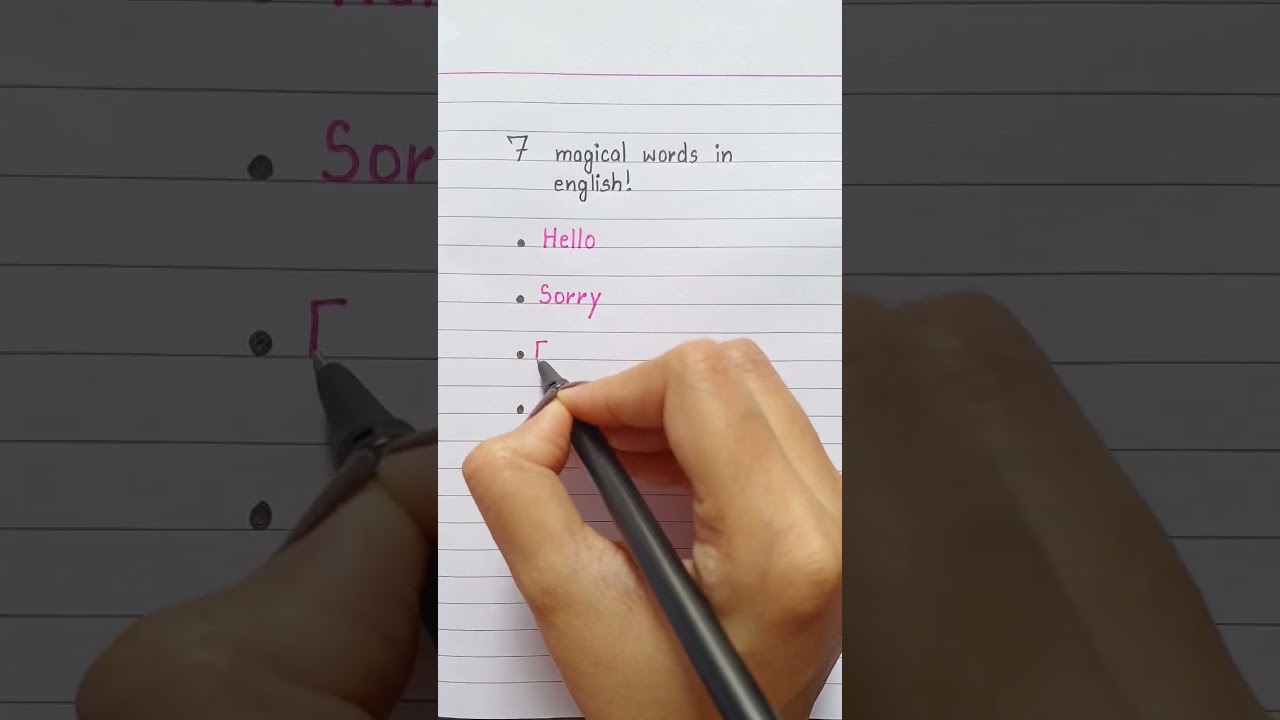 7 magical words in
english!
• Hello
• Sorry
•
•